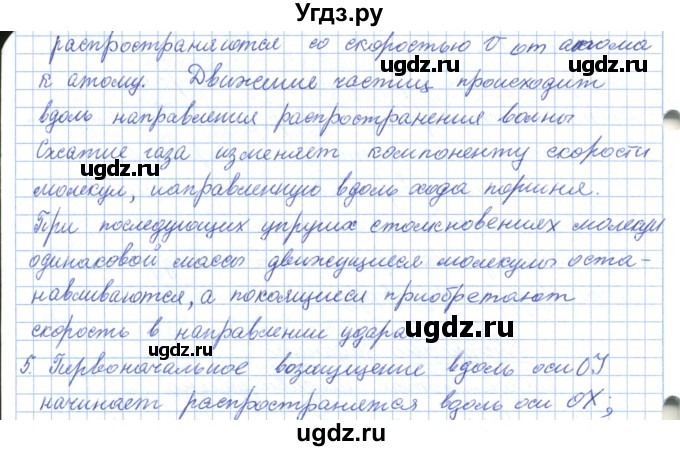 Угдз.ру
распространяются со скоростью υ от атома
к атому. Движение частиц происходит
вдоль направления распространения волны
Сжатие газа изменяет компоненту скорости
молекул, направленную вдоль хода поршня.
При последующих упругих столкновениях молекул
одинаковой массы движущиеся молекулы оста-
навливаются, а покоящиеся приобретают
скорость в направлении удара
5. Первоначальное возмущение вдоль оси OY
начинает распространятся вдоль оси OX;
ugdz.ru
ugdz.ru
ugdz.ru
ugdz.ru
ugdz.ru
ugdz.ru
ugdz.ru
ugdz.ru
ugdz.ru